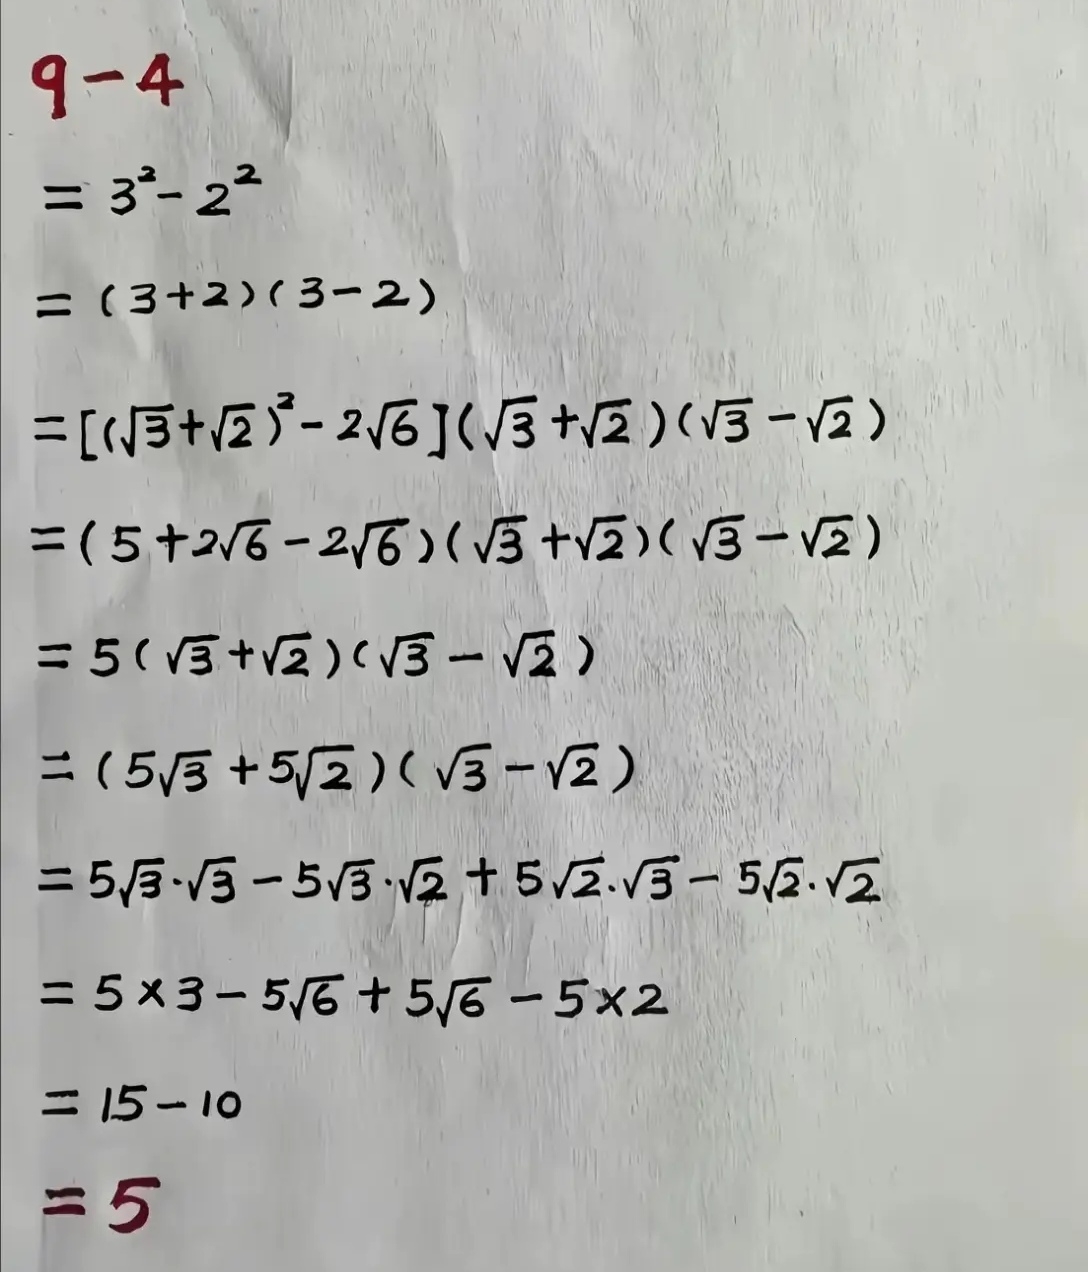 9-4
= 3²- 2²
= (3+2)(3-2)
=[(√3+√2)²- 2√6](√3+√2)(√3-√2)
=(5+2√6-2√6)(√3+√2)(√3-√2)
= 5(√3+√2)(√3-√2)
= (5√3+5√2)(√3-√2)
= 5√3·√3-5√3·√2+5√2·√3-5√2·√2
= 5×3-5√6+5√6-5×2
= 15-10
= 5